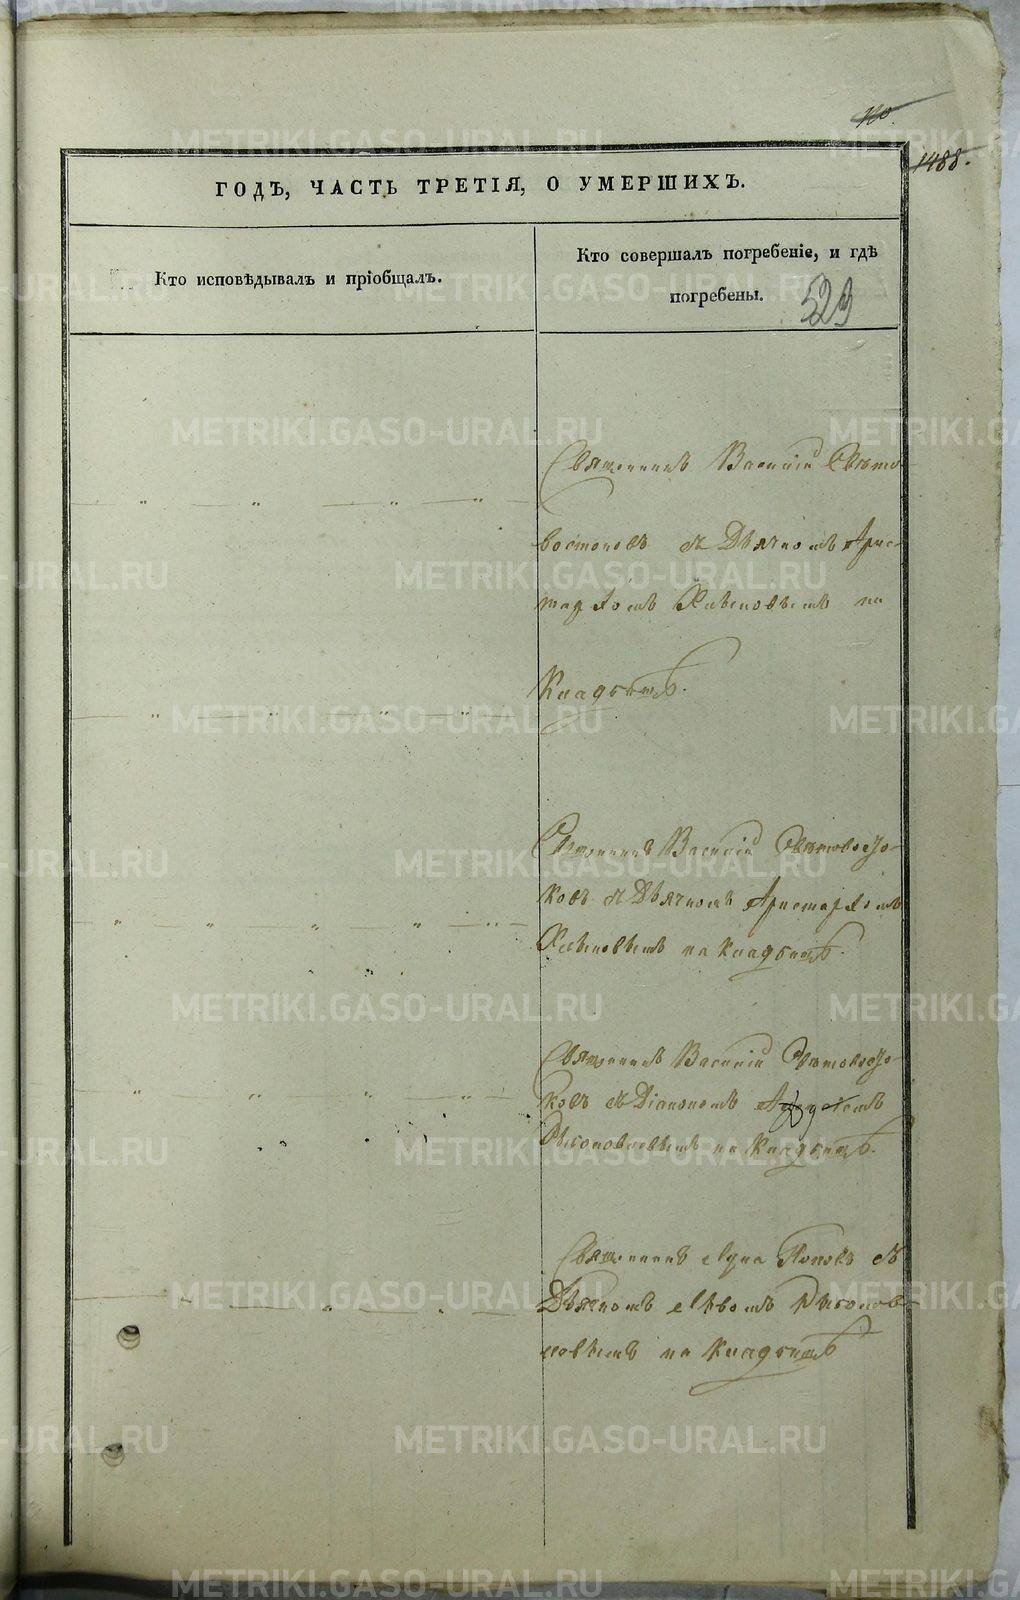 110.
1488.
ГОДЪ, ЧАСТЬ ТРЕТІЯ, О УМЕРШИХЪ.
Кто исповѣдывалъ и пріобщалъ.
Кто совершалъ погребеніе, и гдѣ
погребены.
529
Священникъ Василій Свѣто-
востоковъ съ Дьячкомъ Арис-
тархомъ Хлѣновымъ на
Кладбищѣ.
Священникъ Василій Свѣтовосто-
ковъ съ Дьячкомъ Аристархомъ
на кладбищѣ.
Священникъ Василій Свѣтовосто-
ковъ съ Діакономъ
на Кладбищѣ.
Священникъ Лука Поповъ съ
Дьячкомъ Львомъ
новымъ на Кладбищѣ
METRIKI.GASO-URAL.RU